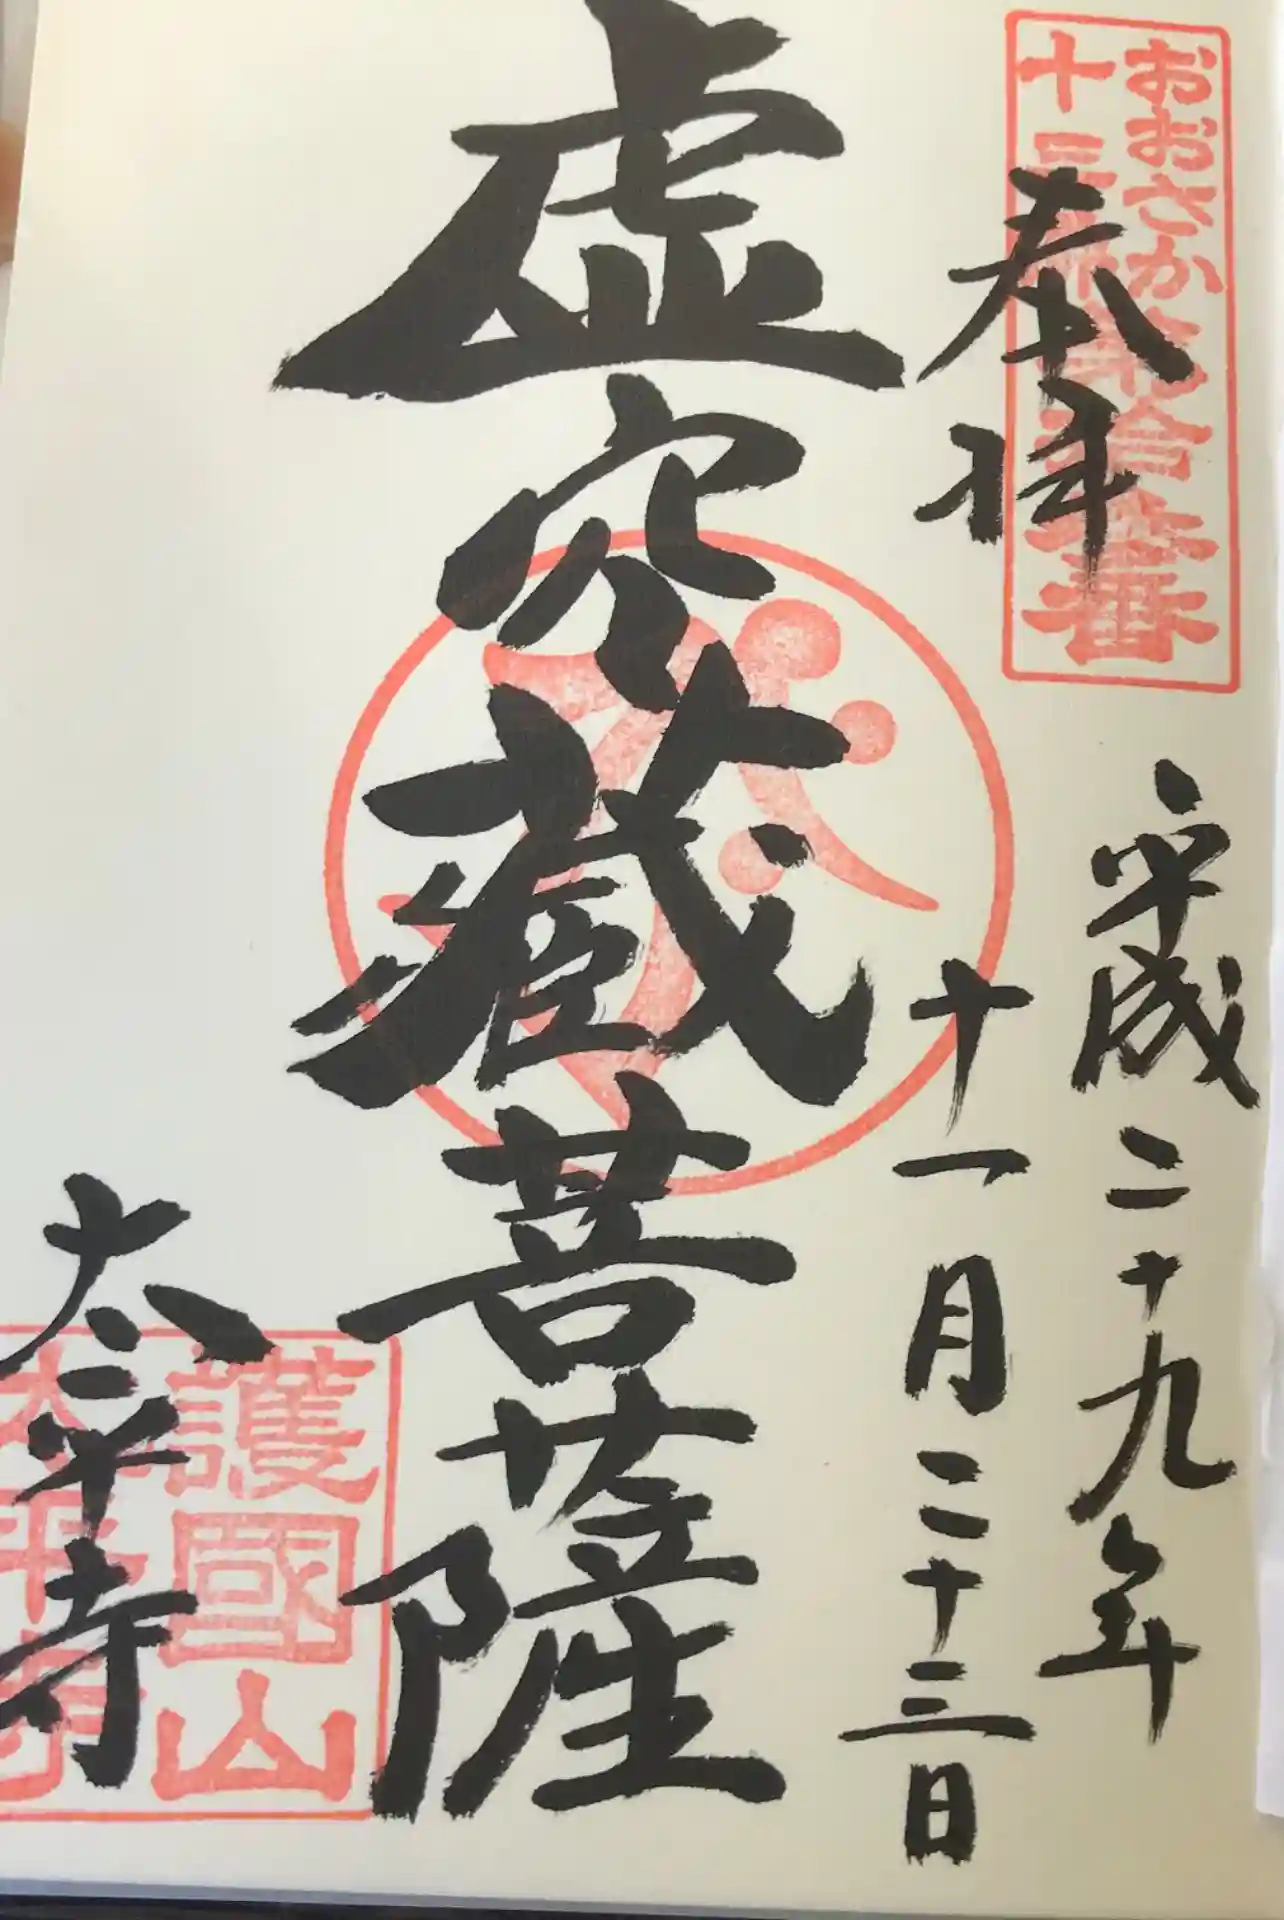 おおさか第拾参番
十三佛
奉拝
平成二十九年
十一月二十三日
虚空蔵菩薩
護國山
太平寺
太平寺